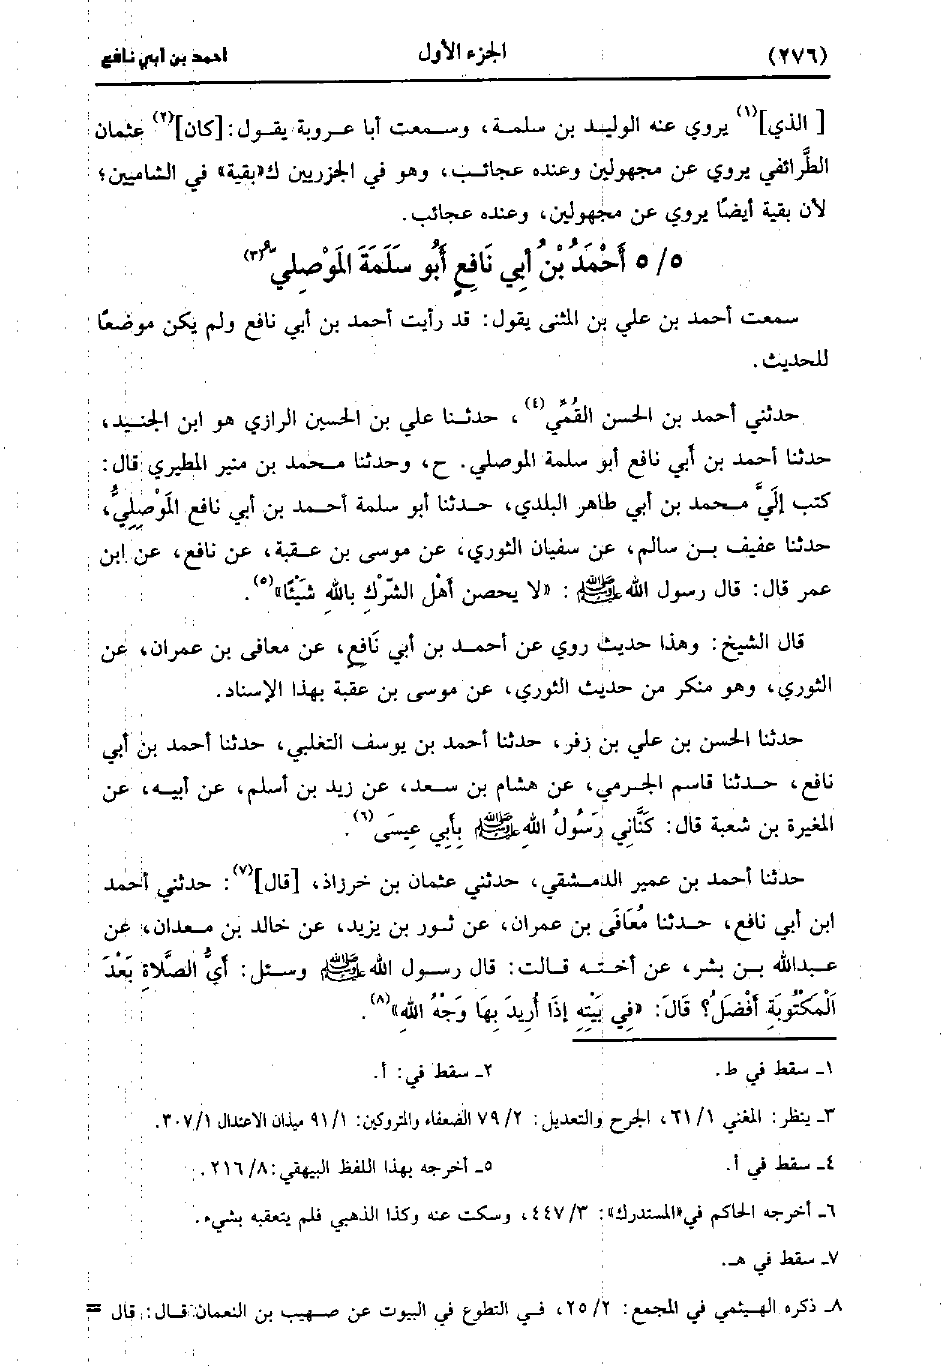 (٢٧٦) الجزء الأول احمد بن ابي نافع
[ الذي](١) يروي عنه الوليد بن سلمة، وسمعت أبا عروبة يقول: [كان](٢) عثمان
الطَّرائفي يروي عن مجهولين وعنده عجائب، وهو في الجزريين ك«بقية» في الشاميين؛
لأن بقية أيضًا يروي عن مجهولين، وعنده عجائب.
٥/ ٥ أَحْمَدُ بْنُ أبِي نَافِعٍ أَبُو سَلَمَةَ المَوْصِلِي(٣)
سمعت أحمد بن علي بن المثنى يقول: قد رأيت أحمد بن أبي نافع ولم يكن موضعًا
للحديث.
حدثني أحمد بن الحسن القُمِّي(٤)، حدثنا علي بن الحسين الرازي هو ابن الجنيد،
حدثنا أحمد بن أبي نافع أبو سلمة الموصلي. ح، وحدثنا محمد بن منير المطيري قال:
كتب إلَيَّ محمد بن أبي طاهر البلدي، حدثنا أبو سلمة أحمد بن أبي نافع المَوْصِلِيُّ،
حدثنا عفيف بن سالم، عن سفيان الثوري، عن موسى بن عقبة، عن نافع، عن ابن
عمر قال: قال رسول الله ﷺ : «لا يحصن أهْل الشّرْكِ باللهِ شَيْئًا»(٥).
قال الشيخ: وهذا حديث روي عن أحمد بن أبي نَافِعٍ، عن معافى بن عمران، عن
الثوري، وهو منكر من حديث الثوري، عن موسى بن عقبة بهذا الإسناد.
حدثنا الحسن بن علي بن زفر، حدثنا أحمد بن يوسف التغلبي، حدثنا أحمد بن أبي
نافع، حدثنا قاسم الجرمي، عن هشام بن سعد، عن زيد بن أسلم، عن أبيه، عن
المغيرة بن شعبة قال: كَنَّانِي رَسُولُ اللهِ ﷺ بِأبِي عِيسَى(٦).
حدثنا أحمد بن عمير الدمشقي، حدثني عثمان بن خرزاذ، [قال](٧): حدثني أحمد
ابن أبي نافع، حدثنا مُعَافَى بن عمران، عن ثور بن يزيد، عن خالد بن معدان، عن
عبدالله بن بشر، عن أخته قالت: قال رسول الله ﷺ وسئل: أيُّ الصَّلاةِ بَعْدَ
الْمَكْتُوبَةِ أفْضَلُ؟ قَالَ: «فِي بَيْتِهِ إذَا أُرِيدَ بِهَا وَجْهُ اللهِ»(٨).
١ـ سقط في ط. ٢ـ سقط في: أ.
٣ـ ينظر: المغني ٦١/١، الجرح والتعديل: ٧٩/٢ الضعفاء والمتروكين: ٩١/١ ميذان الاعتدال ٣٠٧/١.
٤ـ سقط في أ. ٥ـ أخرجه بهذا اللفظ البيهقي: ٢١٦/٨.
٦ـ أخرجه الحاكم في«المستدرك»: ٤٤٧/٣، وسكت عنه وكذا الذهبي فلم يتعقبه بشيء.
٧ـ سقط في هـ.
٨ـ ذكره الهيثمي في المجمع: ٢٥/٢، في التطوع في البيوت عن صهيب بن النعمان قال: قال =